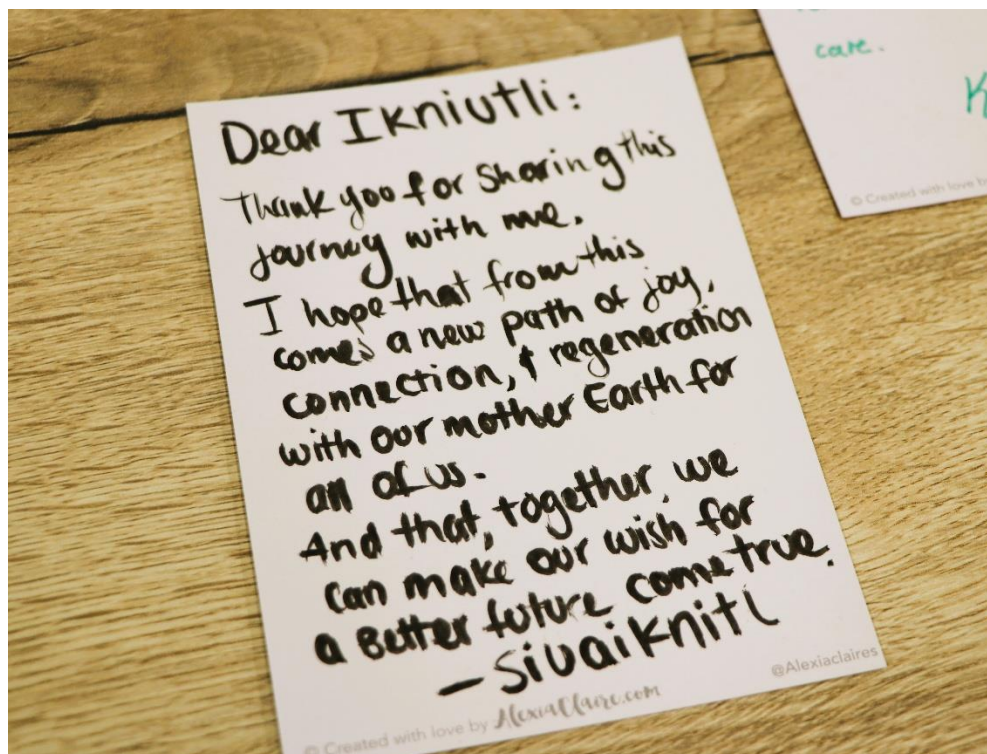 Dear Ikniutli:
Thank you for sharing this
journey with me.
I hope that from this
comes a new path of joy,
connection, & regeneration
with our mother Earth for
all of us.
And that, together, we
can make our wish for
a Better future come true.
—SiuaiKnitl
@Alexiaclaires
© Created with love by AlexiaClaire.com
care.
K
© Created with love b